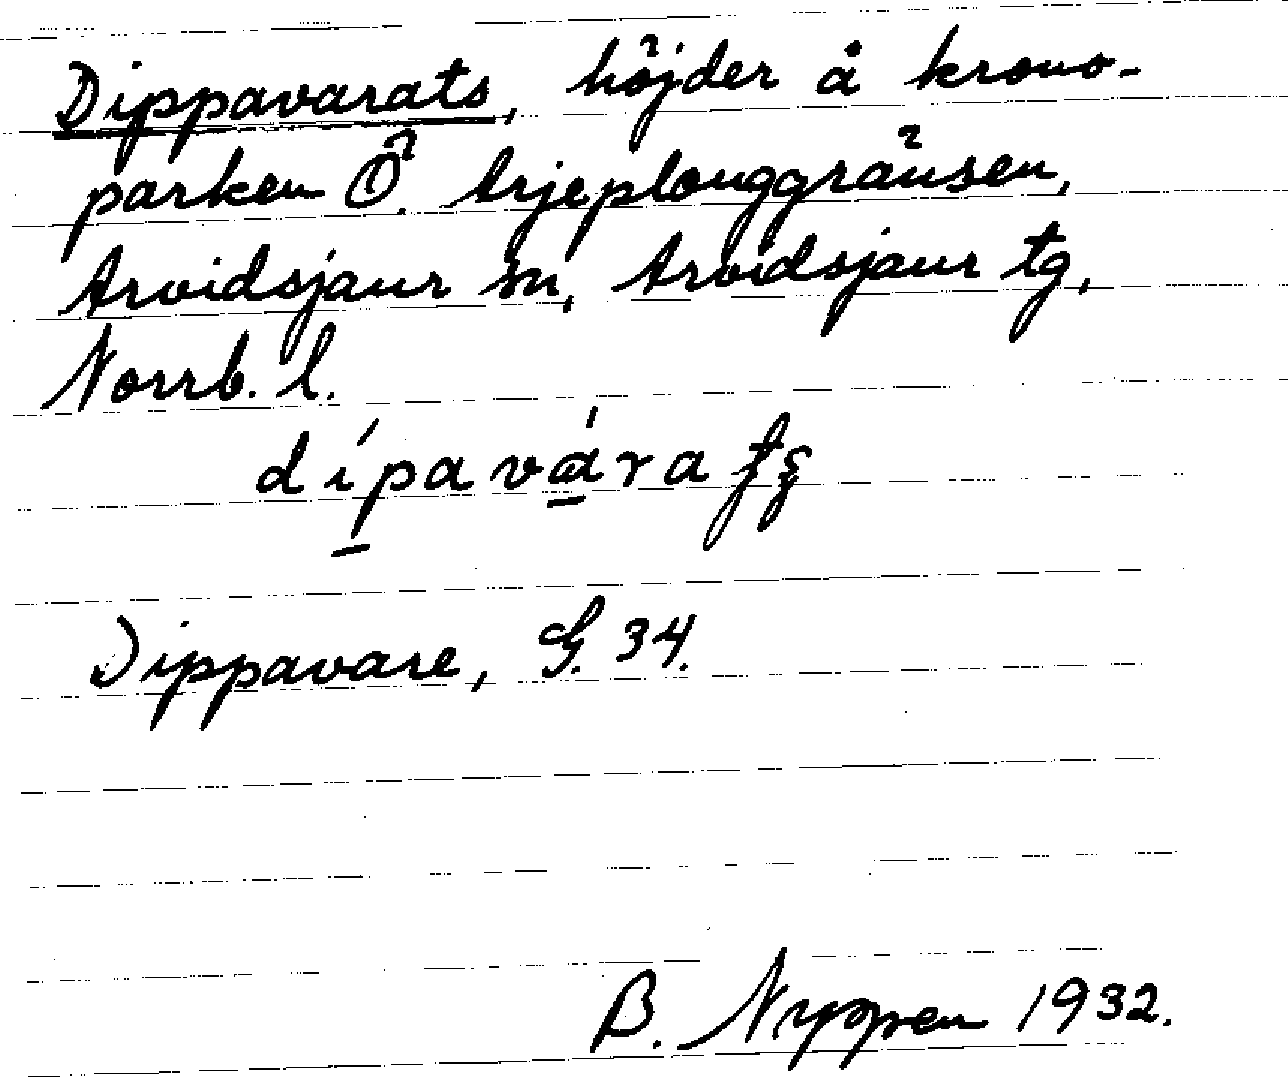 Dippavarats, höjder å krono-
parken Ö. Arjeplouggränsen,
Arvidsjaur sn, Arvidsjaur tg,
Norrb. l.
dípavára
Dippavare, G. 34.
B. Nyppen 1932.